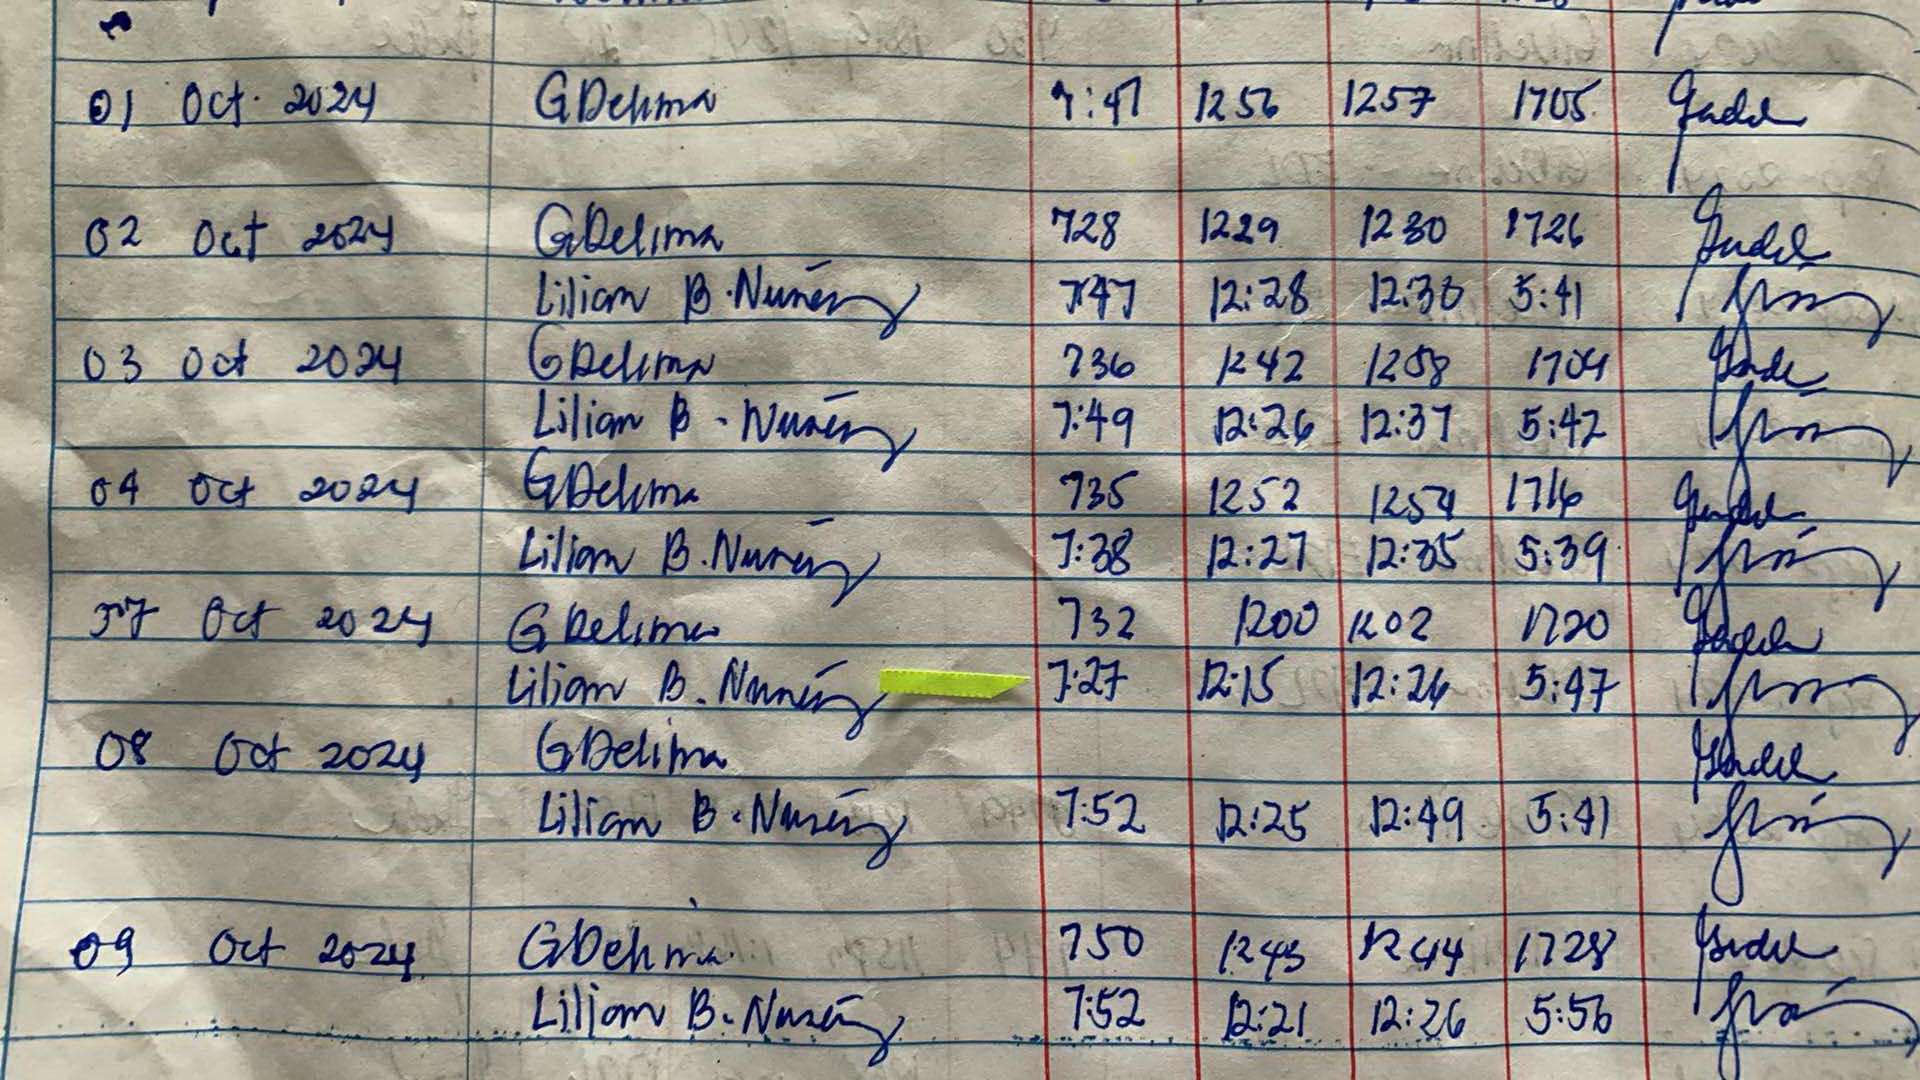 01 Oct. 2024 GDelima 7:47 1256 1257 1705
02 Oct 2024 GDelima 728 1229 1230 1726
Lilian B. Nuñez 7:47 12:28 12:30 5:41
03 Oct 2024 GDelima 736 1242 1258 1704
Lilian B. Nuñez 7:49 12:26 12:37 5:42
04 Oct 2024 GDelima 735 1252 1254 1716
Lilian B. Nuñez 7:38 12:27 12:35 5:39
07 Oct 2024 GDelima 732 1200 1202 1720
Lilian B. Nuñez 7:27 12:15 12:26 5:47
08 Oct 2024 GDelima
Lilian B. Nuñez 7:52 12:25 12:49 5:41
09 Oct 2024 GDelima 750 1243 1244 1728
Lilian B. Nuñez 7:52 12:21 12:26 5:56